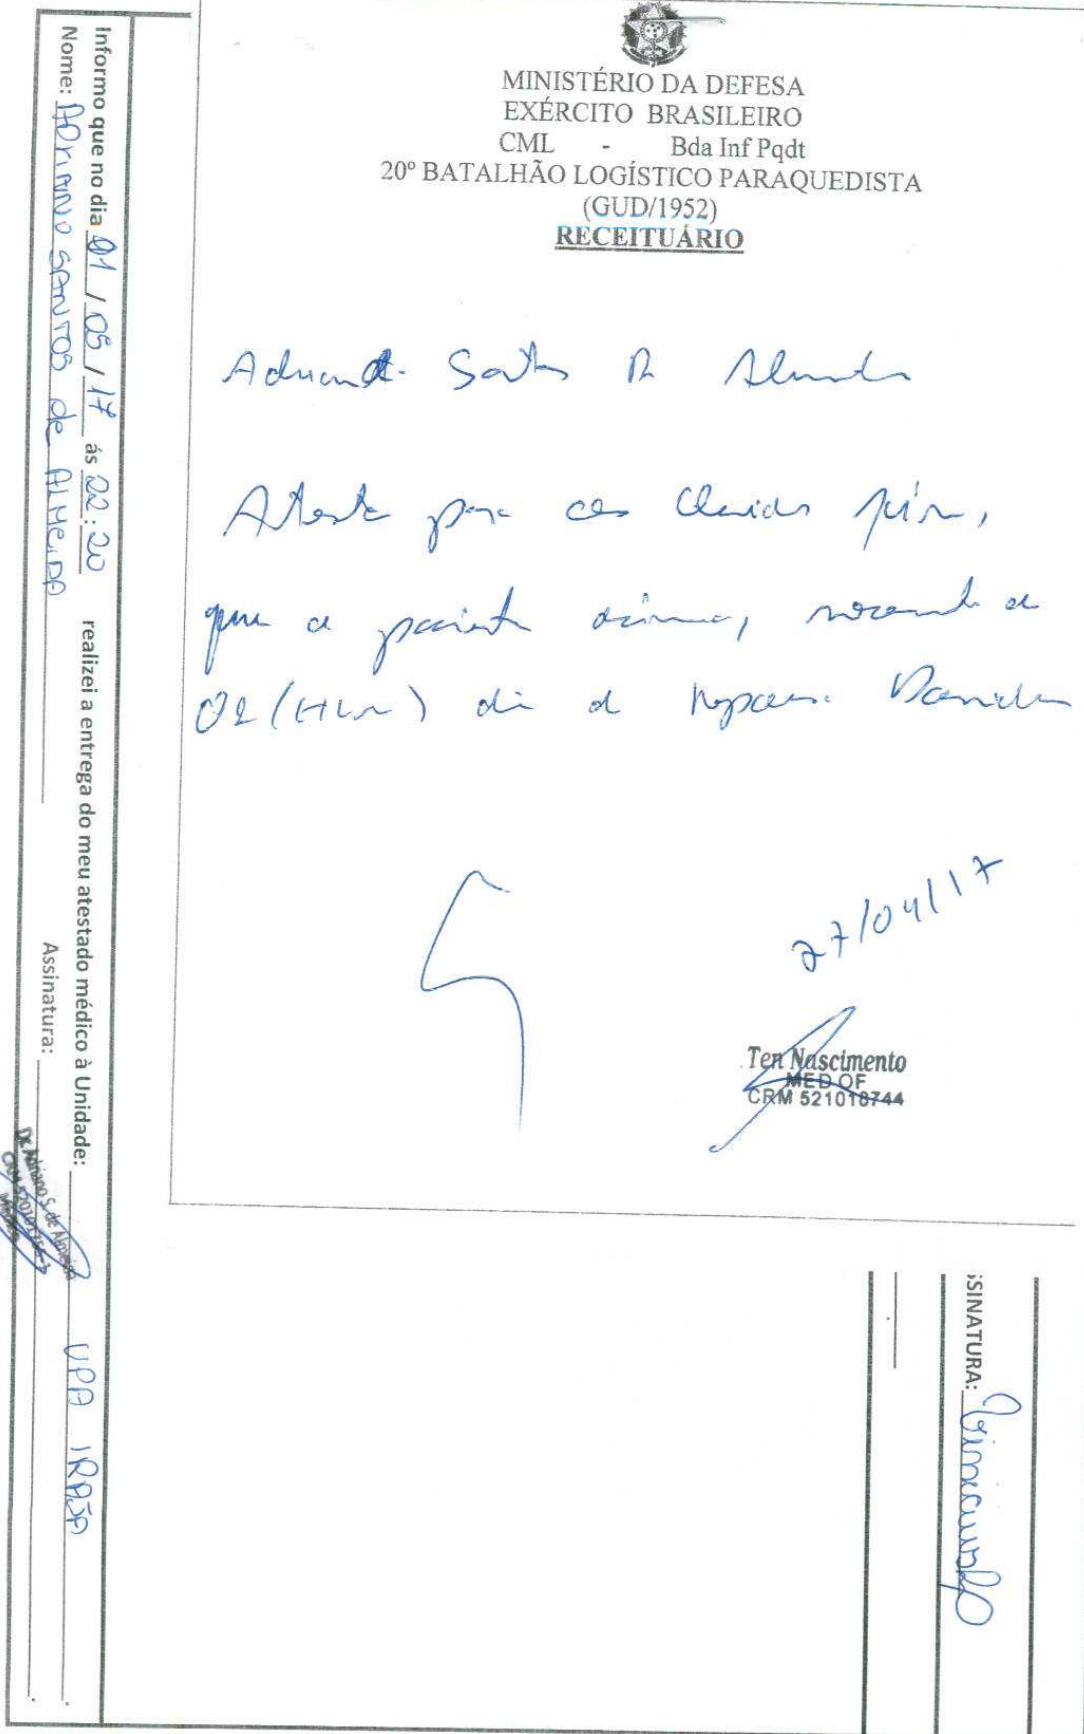 MINISTÉRIO DA DEFESA
EXÉRCITO BRASILEIRO
CML - Bda Inf Pqdt
20º BATALHÃO LOGÍSTICO PARAQUEDISTA
(GUD/1952)
RECEITUÁRIO
Santos Almeida
Atesto para os devidos fins,
que o paciente acima, necessita de
02 ( ) dia de repouso
27/04/17
Ten Nascimento
MED OF
CRM 521018744
Informo que no dia 01/05/17 ás 22:20 realizei a entrega do meu atestado médico à Unidade: UPA IRAJA.
Nome: ADRIANO SANTOS de ALMEIDA Assinatura:
Dr. Adriano S. de Almeida
SSINATURA: